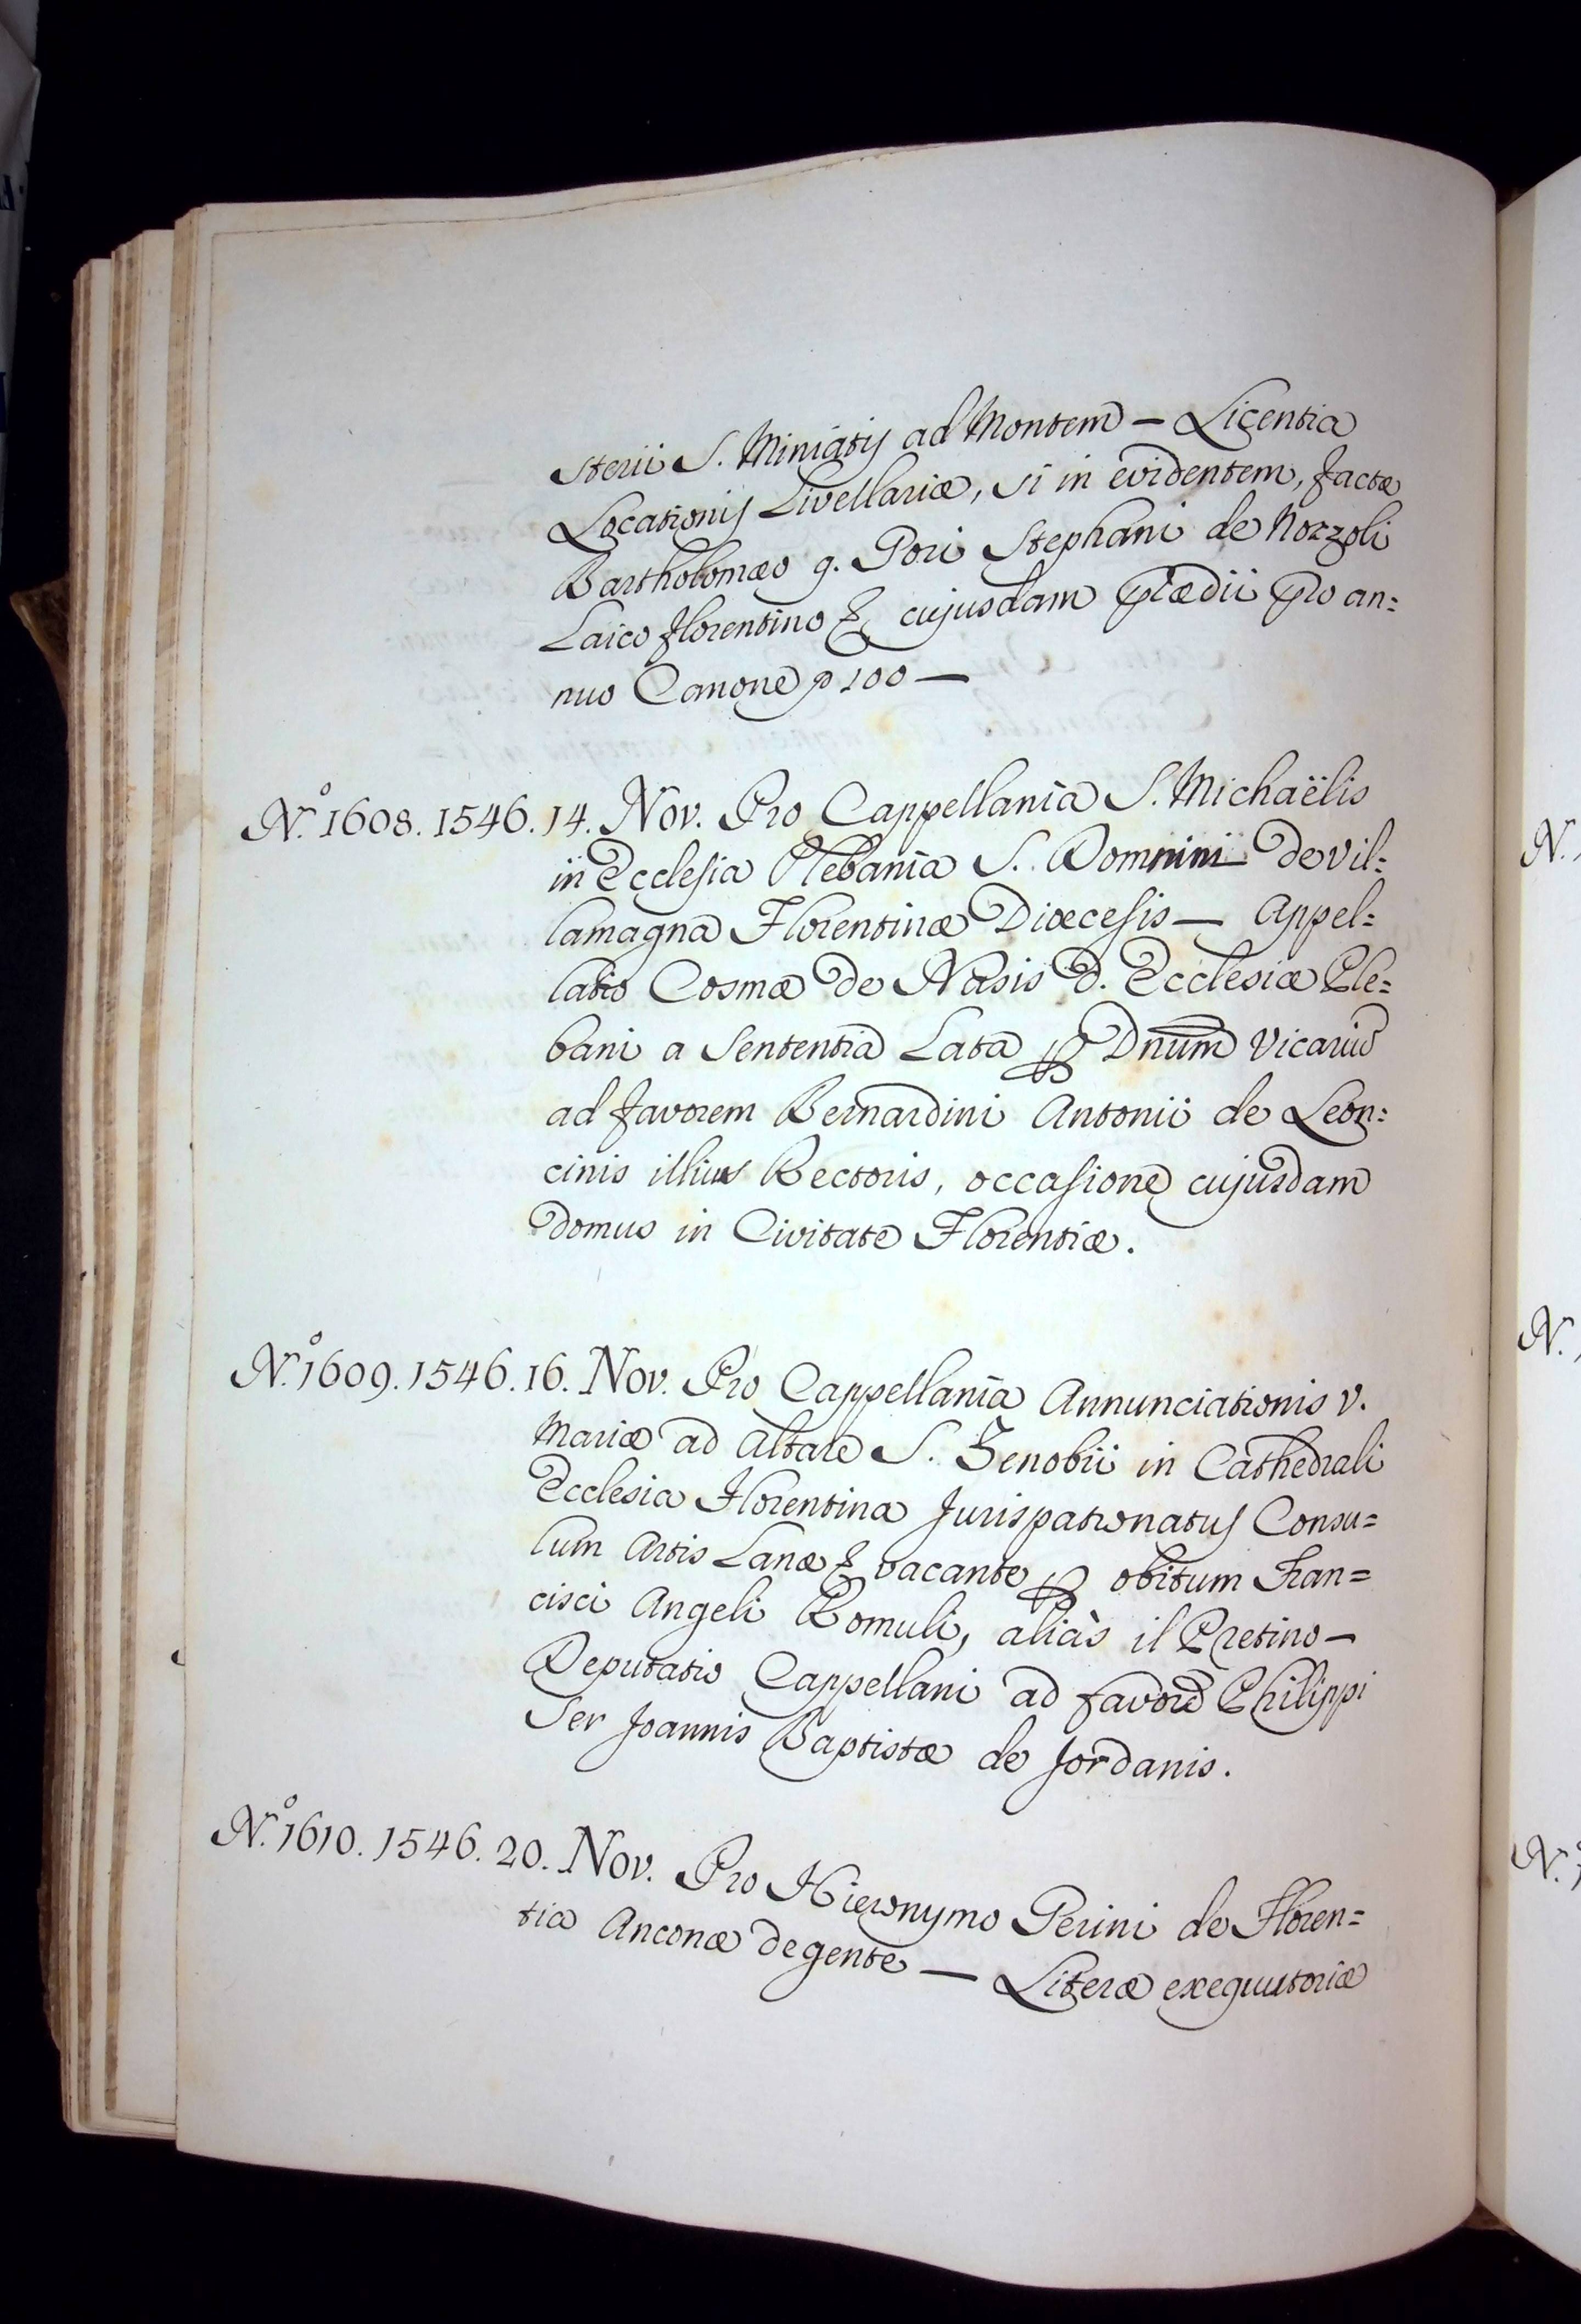 sterii S. Miniatis ad Montem — Licentia
Locationis Livellariæ, si in evidentem, factæ
Bartholomæo q. Pori Stephani de Nozzoli
Laico florentino & cujusdam prædii pro an=
nuo Canone p 100 —
N.º 1608. 1546. 14. Nov. Pro Cappellania S. Michaëlis
in Ecclesia Plebania S. Domnini de Vil=
lamagna Florentinæ Diœcesis — Appel=
latio Cosmæ de Nasis d. Ecclesiæ Ple=
bani a Sententia Lata p Dnum Vicariu
ad favorem Bernardini Antonii de Leon=
cinis illius Rectoris, occasione cujusdam
domus in Civitate Florentiæ.
N.º 1609. 1546. 16. Nov. Pro Cappellania Annunciationis V.
Mariæ ad Altare S. Zenobii in Cathedrali
Ecclesia Florentina Jurispatronatus Consu=
lum Artis Lanæ & vacante p obitum Fran=
cisci Angeli Romuli, aliàs il Pretino —
Deputatio Cappellani ad favorē Philippi
Ser Joannis Baptistæ de Jordanis.
N.º 1610. 1546. 20. Nov. Pro Hieronymo Perini de Floren=
tia Anconæ degente — Literæ exequutoriæ
N.
N.
N.